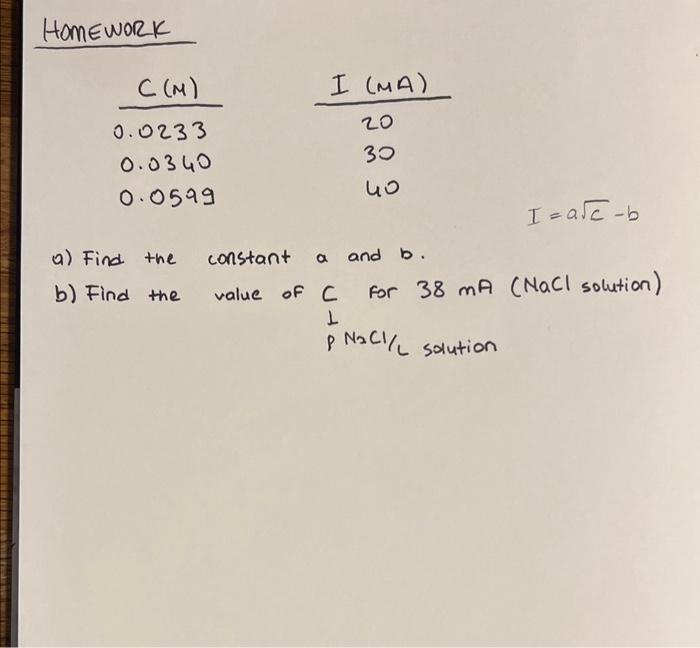 HOMEWORK
C (M) I (MA)
0.0233 20
0.0340 30
0.0599 40
I = a√c - b
a) Find the constant a and b.
b) Find the value of C for 38 mA (NaCl solution)
NaCl/L solution